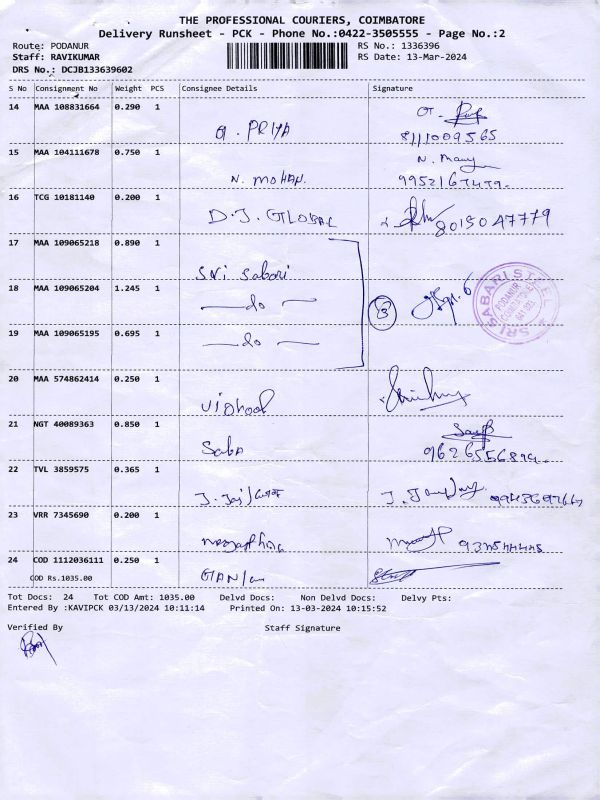 THE PROFESSIONAL COURIERS, COIMBATORE
Delivery Runsheet - PCK - Phone No.:0422-3505555 - Page No.:2
Route: PODANUR RS No.: 1336396
Staff: RAVIKUMAR RS Date: 13-Mar-2024
DRS No.: DCJB133639602
S No Consignment No Weight PCS Consignee Details Signature
14 MAA 108831664 0.290 1
G. PRIYA 8111009565
15 MAA 104111678 0.750 1
N. MOHAN.
16 TCG 10181140 0.200 1
D.J. GLOBAL 8015047779
17 MAA 109065218 0.890 1
Sri Sabari
18 MAA 109065204 1.245 1
-do- 3
SRI SABARI STEEL PODANUR
19 MAA 109065195 0.695 1
-do-
20 MAA 574862414 0.250 1
21 NGT 40089363 0.850 1
22 TVL 3859575 0.365 1
23 VRR 7345690 0.200 1
24 COD 1112036111 0.250 1
COD Rs.1035.00
Tot Docs: 24 Tot COD Amt: 1035.00 Delvd Docs: Non Delvd Docs: Delvy Pts:
Entered By :KAVIPCK 03/13/2024 10:11:14 Printed On: 13-03-2024 10:15:52
Verified By Staff Signature